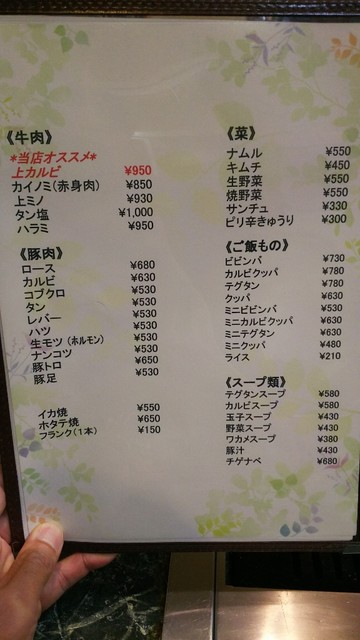 《牛肉》
*当店オススメ*
上カルビ ¥950
カイノミ(赤身肉) ¥850
上ミノ ¥930
タン塩 ¥1,000
ハラミ ¥950
《豚肉》
ロース ¥680
カルビ ¥630
コブクロ ¥530
タン ¥530
レバー ¥530
ハツ ¥530
生モツ(ホルモン) ¥530
ナンコツ ¥530
豚トロ ¥650
豚足 ¥530
イカ焼 ¥550
ホタテ焼 ¥650
フランク(1本) ¥150
《菜》
ナムル ¥550
キムチ ¥450
生野菜 ¥550
焼野菜 ¥550
サンチュ ¥330
ピリ辛きゅうり ¥300
《ご飯もの》
ビビンバ ¥730
カルビクッパ ¥780
テグタン ¥780
クッパ ¥630
ミニビビンバ ¥530
ミニカルビクッパ ¥630
ミニテグタン ¥630
ミニクッパ ¥480
ライス ¥210
《スープ類》
テグタンスープ ¥580
カルビスープ ¥580
玉子スープ ¥430
野菜スープ ¥430
ワカメスープ ¥380
豚汁 ¥430
チゲナベ ¥680